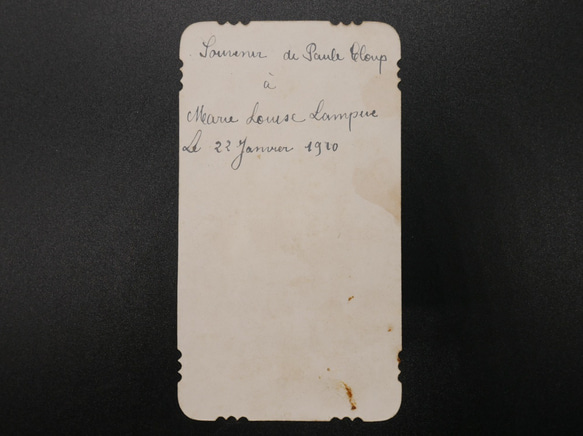 Souvenir de Paule Cloup
à
Marie Louise Lampue
Le 22 Janvier 1910